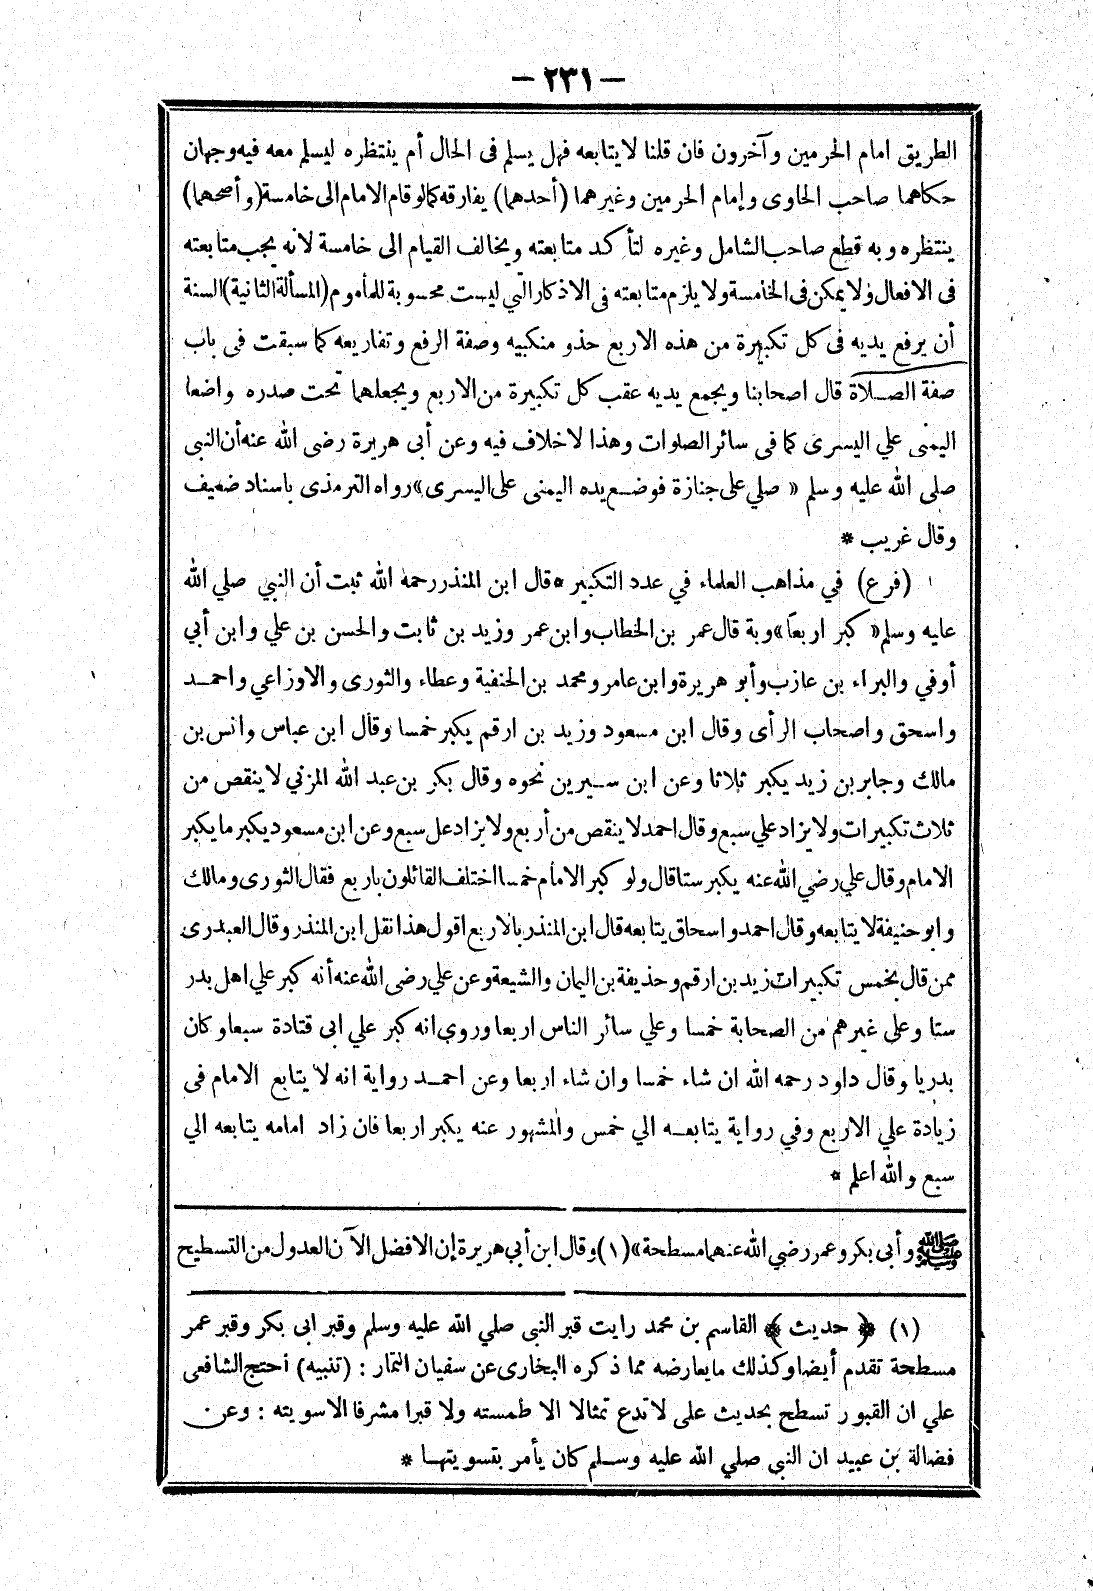 — ٢٣١ —
الطريق امام الحرمين وآخرون فان قلنا لايتابعه فهل يسلم فى الحال أم ينتظره ليسلم معه فيه وجهان
حكاهما صاحب الحاوى وإمام الحرمين وغيرهما (أحدهما) يفارقه كما لو قام الامام الى خامسة (وأصحهما)
ينتظره وبه قطع صاحب الشامل وغيره لتأكد متابعته ويخالف القيام الى خامسة لانه يجب متابعته
فى الافعال ولا يمكن فى الخامسة ولا يلزم متابعته فى الاذكار التى ليست محسوبة للمأموم (المسألة الثانية) السنة
أن يرفع يديه فى كل تكبيرة من هذه الاربع حذو منكبيه وصفة الرفع وتفاريعه كما سبقت فى باب
صفة الصــلاة قال اصحابنا ويجمع يديه عقب كل تكبيرة من الاربع ويجعلهما تحت صدره واضعا
اليمنى علي اليسرى كما فى سائر الصلوات وهذا لا خلاف فيه وعن أبى هريرة رضى الله عنه أن النبى
صلى الله عليه وسلم « صلي على جنازة فوضــع يده اليمنى على اليسرى » رواه الترمذى باسناد ضعيف
وقال غريب *
(فرع) في مذاهب العلماء في عدد التكبير * قال ابن المنذر رحمه الله ثبت أن النبي صلي الله
عليه وسلم « كبر اربعاً » وبة قال عمر بن الخطاب وابن عمر وزيد بن ثابت والحسن بن علي وابن أبي
أوفي والبراء بن عازب وأبو هريرة وابن عامر ومحمد بن الحنفية وعطاء والثورى والاوزاعي واحمــد
واسحق واصحاب الرأى وقال ابن مسعود وزيد بن ارقم يكبر خمسا وقال ابن عباس وانس بن
مالك وجابر بن زيد يكبر ثلاثا وعن ابن ســيرين نحوه وقال بكر بن عبد الله المزني لا ينقص من
ثلاث تكبيرات ولا يزاد علي سبع وقال احمد لا ينقص من أربع ولا يزاد عل سبع وعن ابن مسعود يكبر ما يكبر
الامام وقال علي رضي الله عنه يكبر ستا قال ولو كبر الامام خمسا اختلف القائلون باربع فقال الثورى ومالك
وابو حنيفة لا يتابعه وقال احمد واسحاق يتابعه قال ابن المنذر بالاربع اقول هذا نقل ابن المنذر وقال العبدرى
ممن قال بخمس تكبيرات زيد بن ارقم وحذيفة بن اليمان والشيعة وعن علي رضى الله عنه أنه كبر علي اهل بدر
ستا وعلى غيرهم من الصحابة خمسا وعلي سائر الناس اربعا وروى انه كبر علي ابى قتادة سبعا وكان
بدريا وقال داود رحمه الله ان شاء خمسا وان شاء اربعا وعن احمــد رواية انه لا يتابع الامام فى
زيادة علي الاربع وفي رواية يتابعــه الي خمس والمشهور عنه يكبر اربعا فان زاد امامه يتابعه الي
سبع والله اعلم *
ﷺ وأبى بكر وعمر رضي الله عنهما مسطحة » (١) وقال ابن أبي هريرة إن الافضل الآن العدول من التسطيح
(١) ﴿ حديث ﴾ القاسم بن محمد رايت قبر النبى صلي الله عليه وسلم وقبر ابى بكر وقبر عمر
مسطحة تقدم أيضا وكذلك مايعارضه مما ذكره البخارى عن سفيان التمار : (تنبيه) احتج الشافعى
علي ان القبور تسطح بحديث على لا تدع تمثالا الا طمسته ولا قبرا مشرفا الا سويته : وعن
فضالة بن عبيد ان النبى صلي الله عليه وســلم كان يأمر بتسويتهــا *